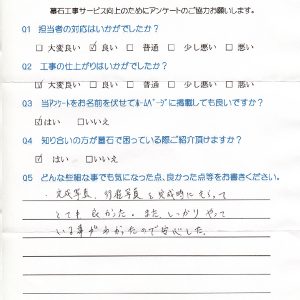 墓石工事サービス向上のためにアンケートのご協力お願いします。
Q1 担当者の対応はいかがでしたか?
□ 大変良い ☑ 良い □ 普通 □ 少し悪い □ 悪い
Q2 工事の仕上がりはいかがでしたか?
☑ 大変良い □ 良い □ 普通 □ 少し悪い □ 悪い
Q3 当アンケートをお名前を伏せてホームページに掲載しても良いですか?
☑ はい □ いいえ
Q4 知り合いの方が墓石で困っている際ご紹介頂けますか?
☑ はい □ いいえ
Q5 どんな些細な事でも気になった点、良かった点等をお書きください。
・完成写真、行程写真を完成時にもらって
とても良かった。また、しっかりやって
いる事がわかったので安心した。